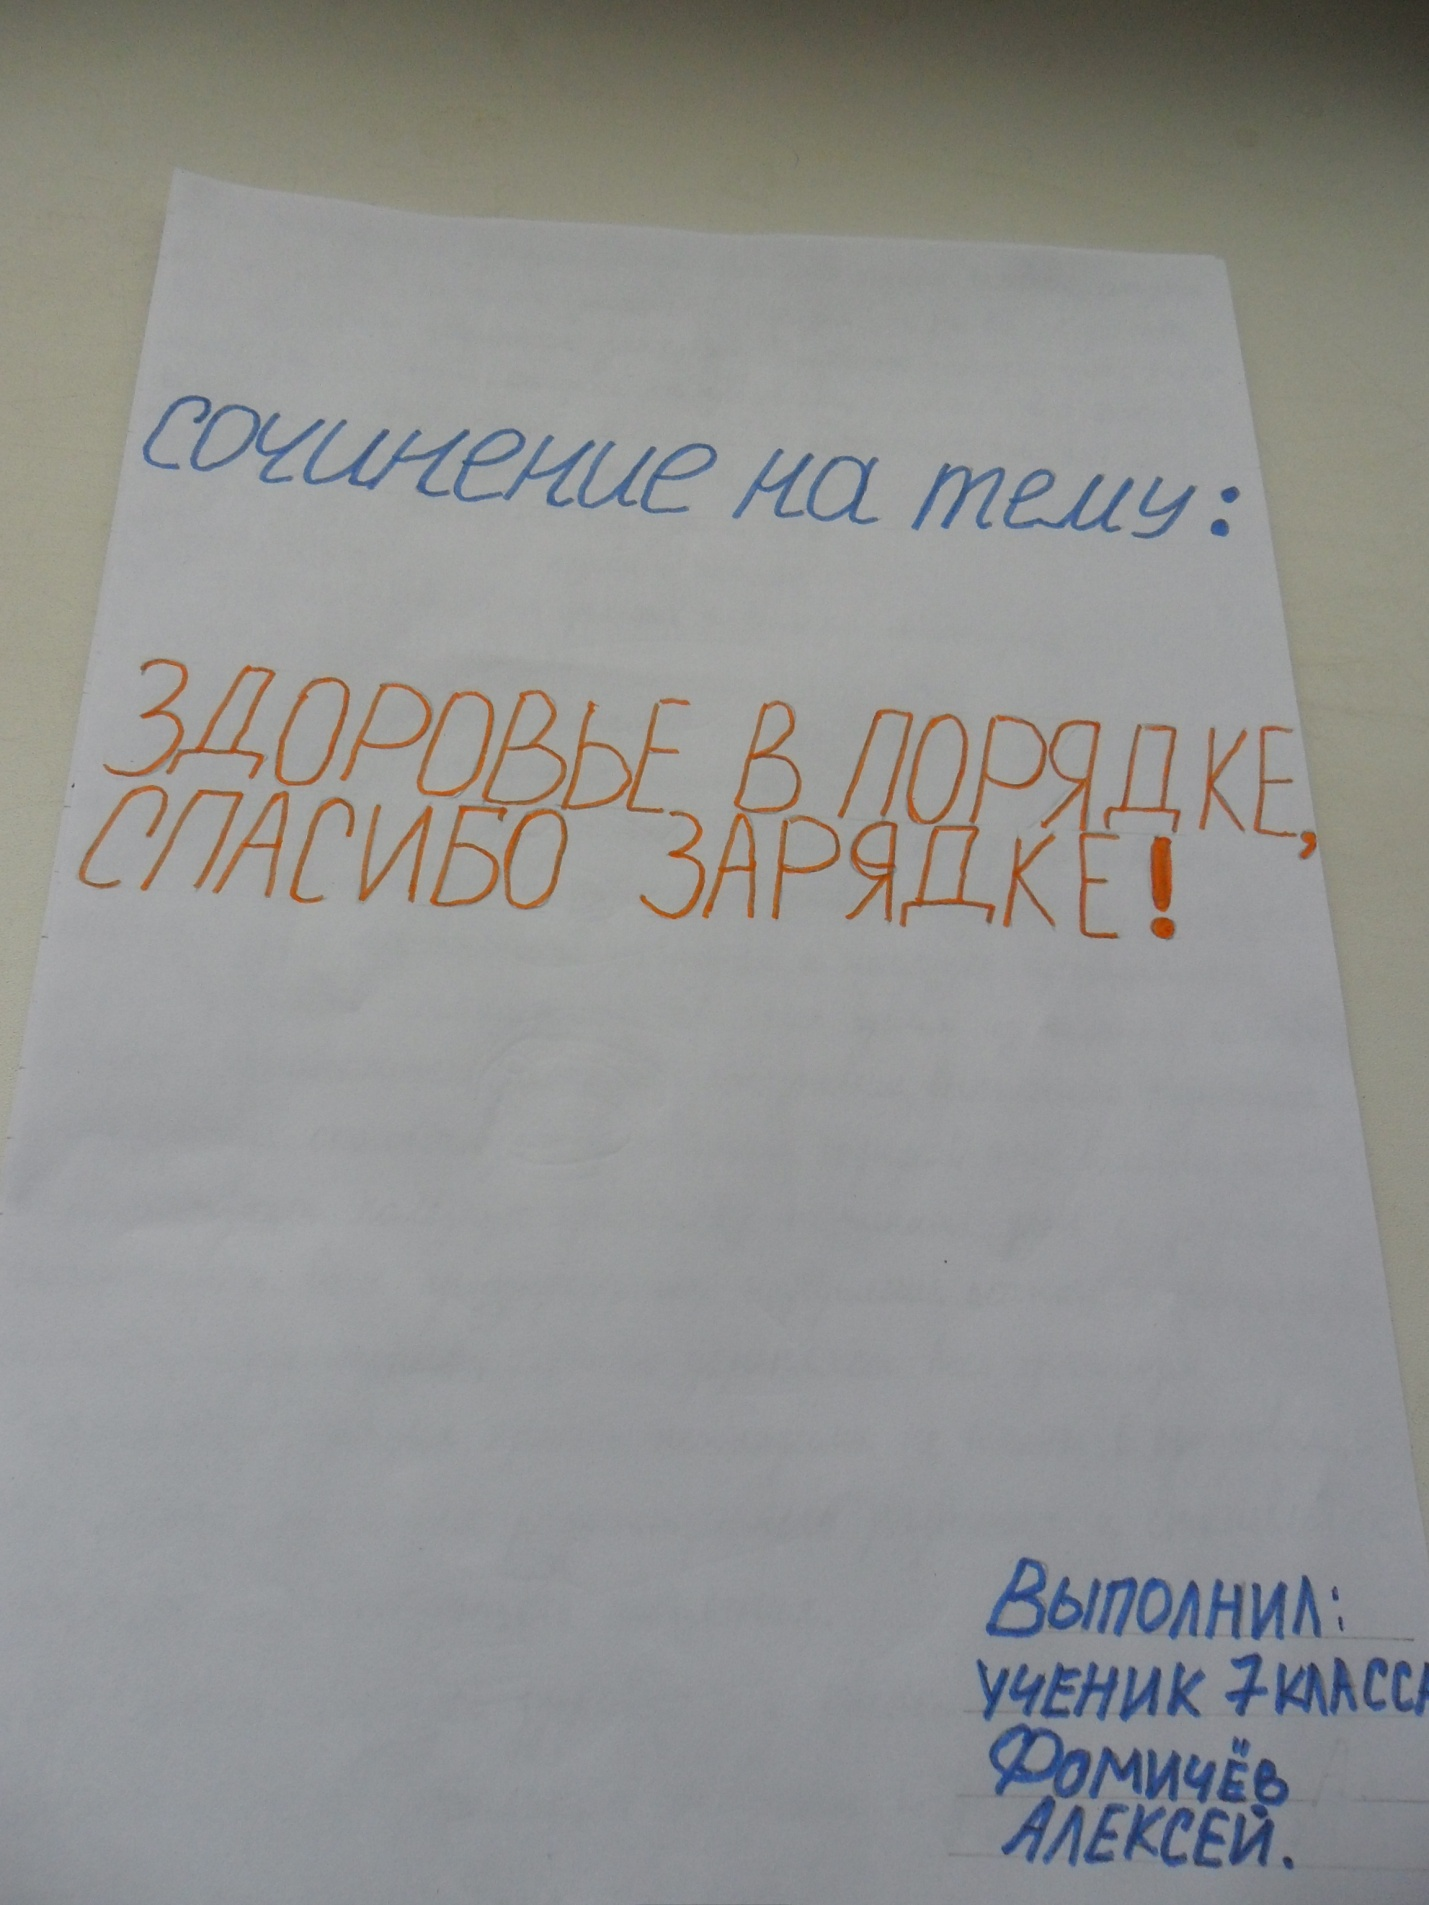 сочинение на тему:
ЗДОРОВЬЕ В ПОРЯДКЕ,
СПАСИБО ЗАРЯДКЕ!
Выполнил:
УЧЕНИК 7 КЛАССА
ФОМИЧЁВ
АЛЕКСЕЙ.